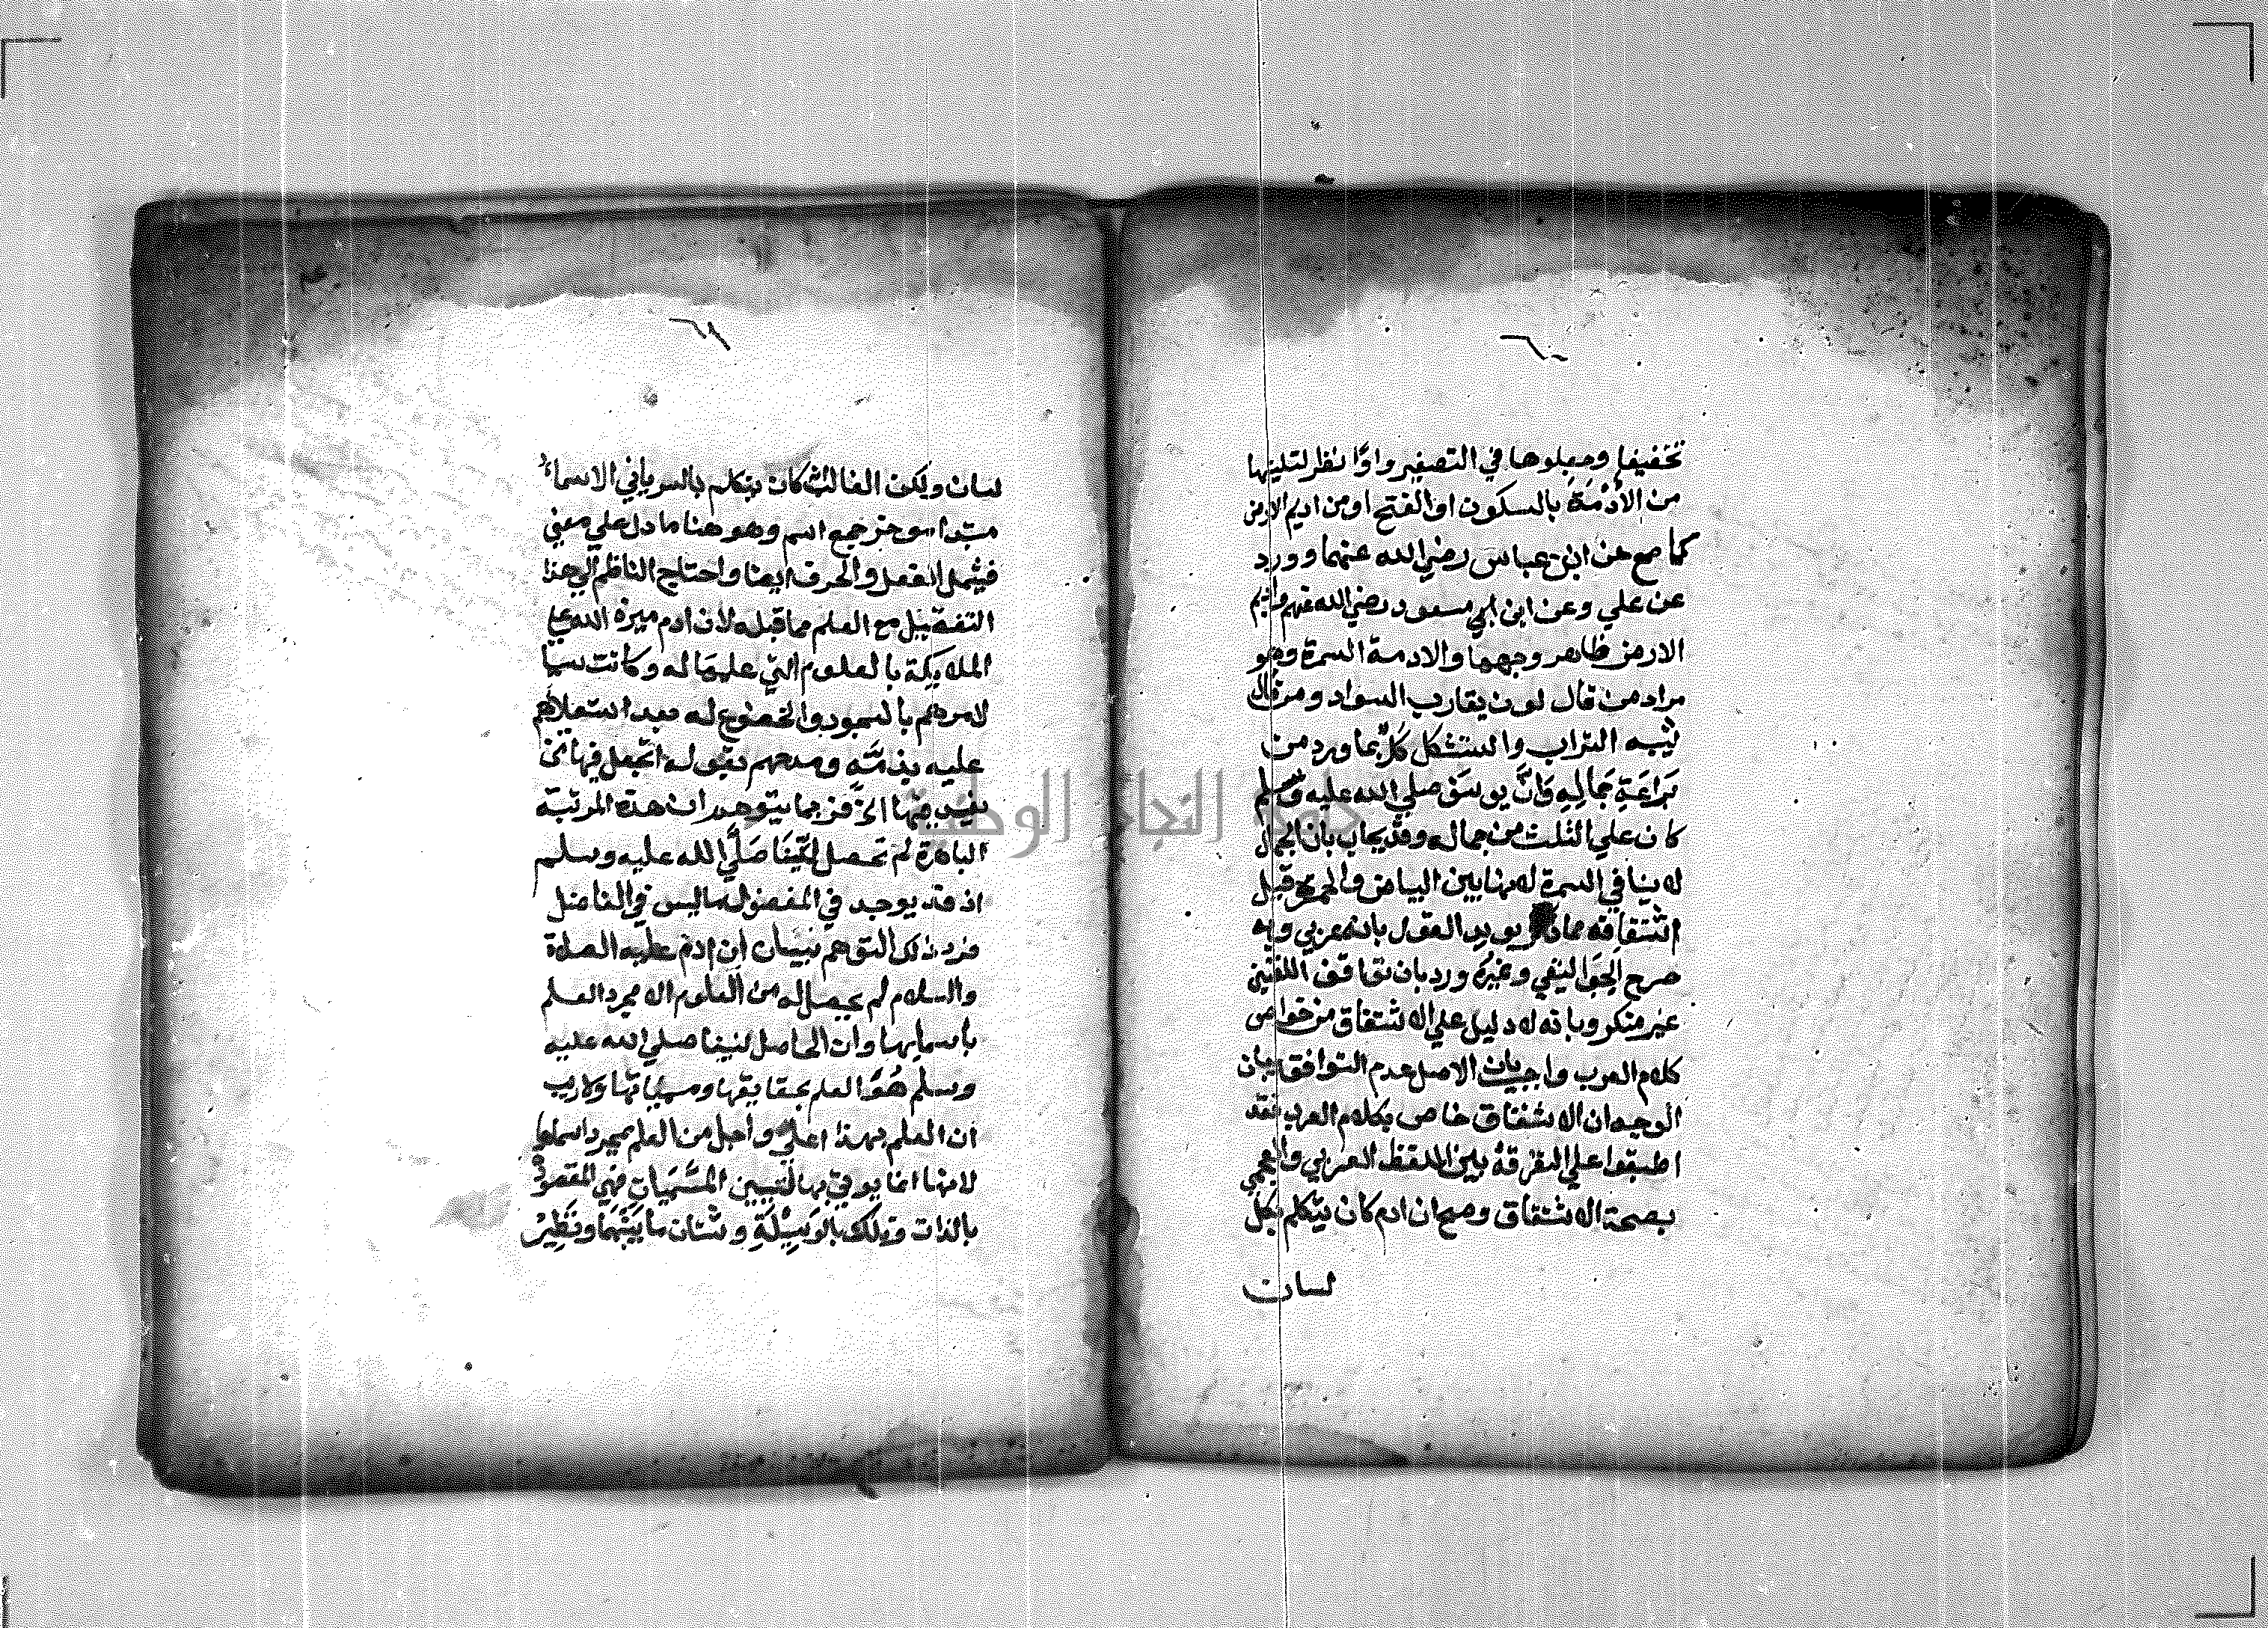 ٦٠
تخفيفا وجعلوها في التصغير واوًا نظر لتليينها
من الأدْمَة بالسكون او الفتح او من اديم الارض
كما صح عن ابن عباس رضي الله عنهما وورد
عن علي وعن ابن ابي مسعود رضي الله عنهم واديم
الارض ظاهر وجهها والادمة السمرة وهو
مراد من قال لون يقارب السواد ومن قال
يشبه التراب واستشكل كلٌّ بما ورد من
بَراعَة جَمالِهِ وَانَّ يوسف صلي الله عليه وسلم
كان علي الثلث من جماله وقد يجاب بان الجمال
لا ينافي السمرة لانها بين البياض والحمرة قيل
اشتقاقه مما ذكر يويد القول بانه عربي وبه
صرح الجَواليقي وغيره ورد بان توافق اللغتين
غير منكر وبانه لا دليل علي الاشتقاق من خواص
كلام العرب واجيب بان الاصل عدم التوافق وبان
الوجيه ان الاشتقاق خاص بكلام العرب فقد
اطبقوا علي التفرقة بين اللفظ العربي والعجمي
بصحة الاشتقاق وصح ان ادم كان يتكلم بكل
لسان
٦١
لسان ولكن الغالب كان يتكلم بالسرياني الاسماءُ
مبتدا موخر جمع اسم وهو هنا ما دل علي معني
فيشمل الفعل والحرف ايضا واحتاج الناظم الي هذا
التفصيل مع العلم مما قبله لان ادم ميزه الله علي
الملايكة بالعلوم التي علمها له وكانت سببا
لامرهم بالسجود والخضوع له بعد استعلائهم
عليه بذمّه ومدحهم بقولهم اتجعل فيها من
يفسد فيها الخ فربما يتوهم ان هذه المرتبة
الباهرة لم تحصل لنبينا صَلَّى الله عليه وسلم
اذ قد يوجد في المفضول ما ليس في الفاضل
فرد ذلك التوهم ببيان ان ادم عليه الصلاة
والسلام لم يحصل له من العلوم الا مجرد العلم
باسمائها وان الحاصل لنبينا صلي الله عليه
وسلم هُوَ العلم بحقايقها ومسمياتها ولا ريب
ان العلم بهذا اعلي واجل من العلم بمجرد اسمائها
لانها انما يوتي بها لتبيين المسَمَيات فهي المقصودة
بالذات وتلك بالوَسِيْلَةِ وشتان ما بَيْنَهُمَا ونَظِيْرُ